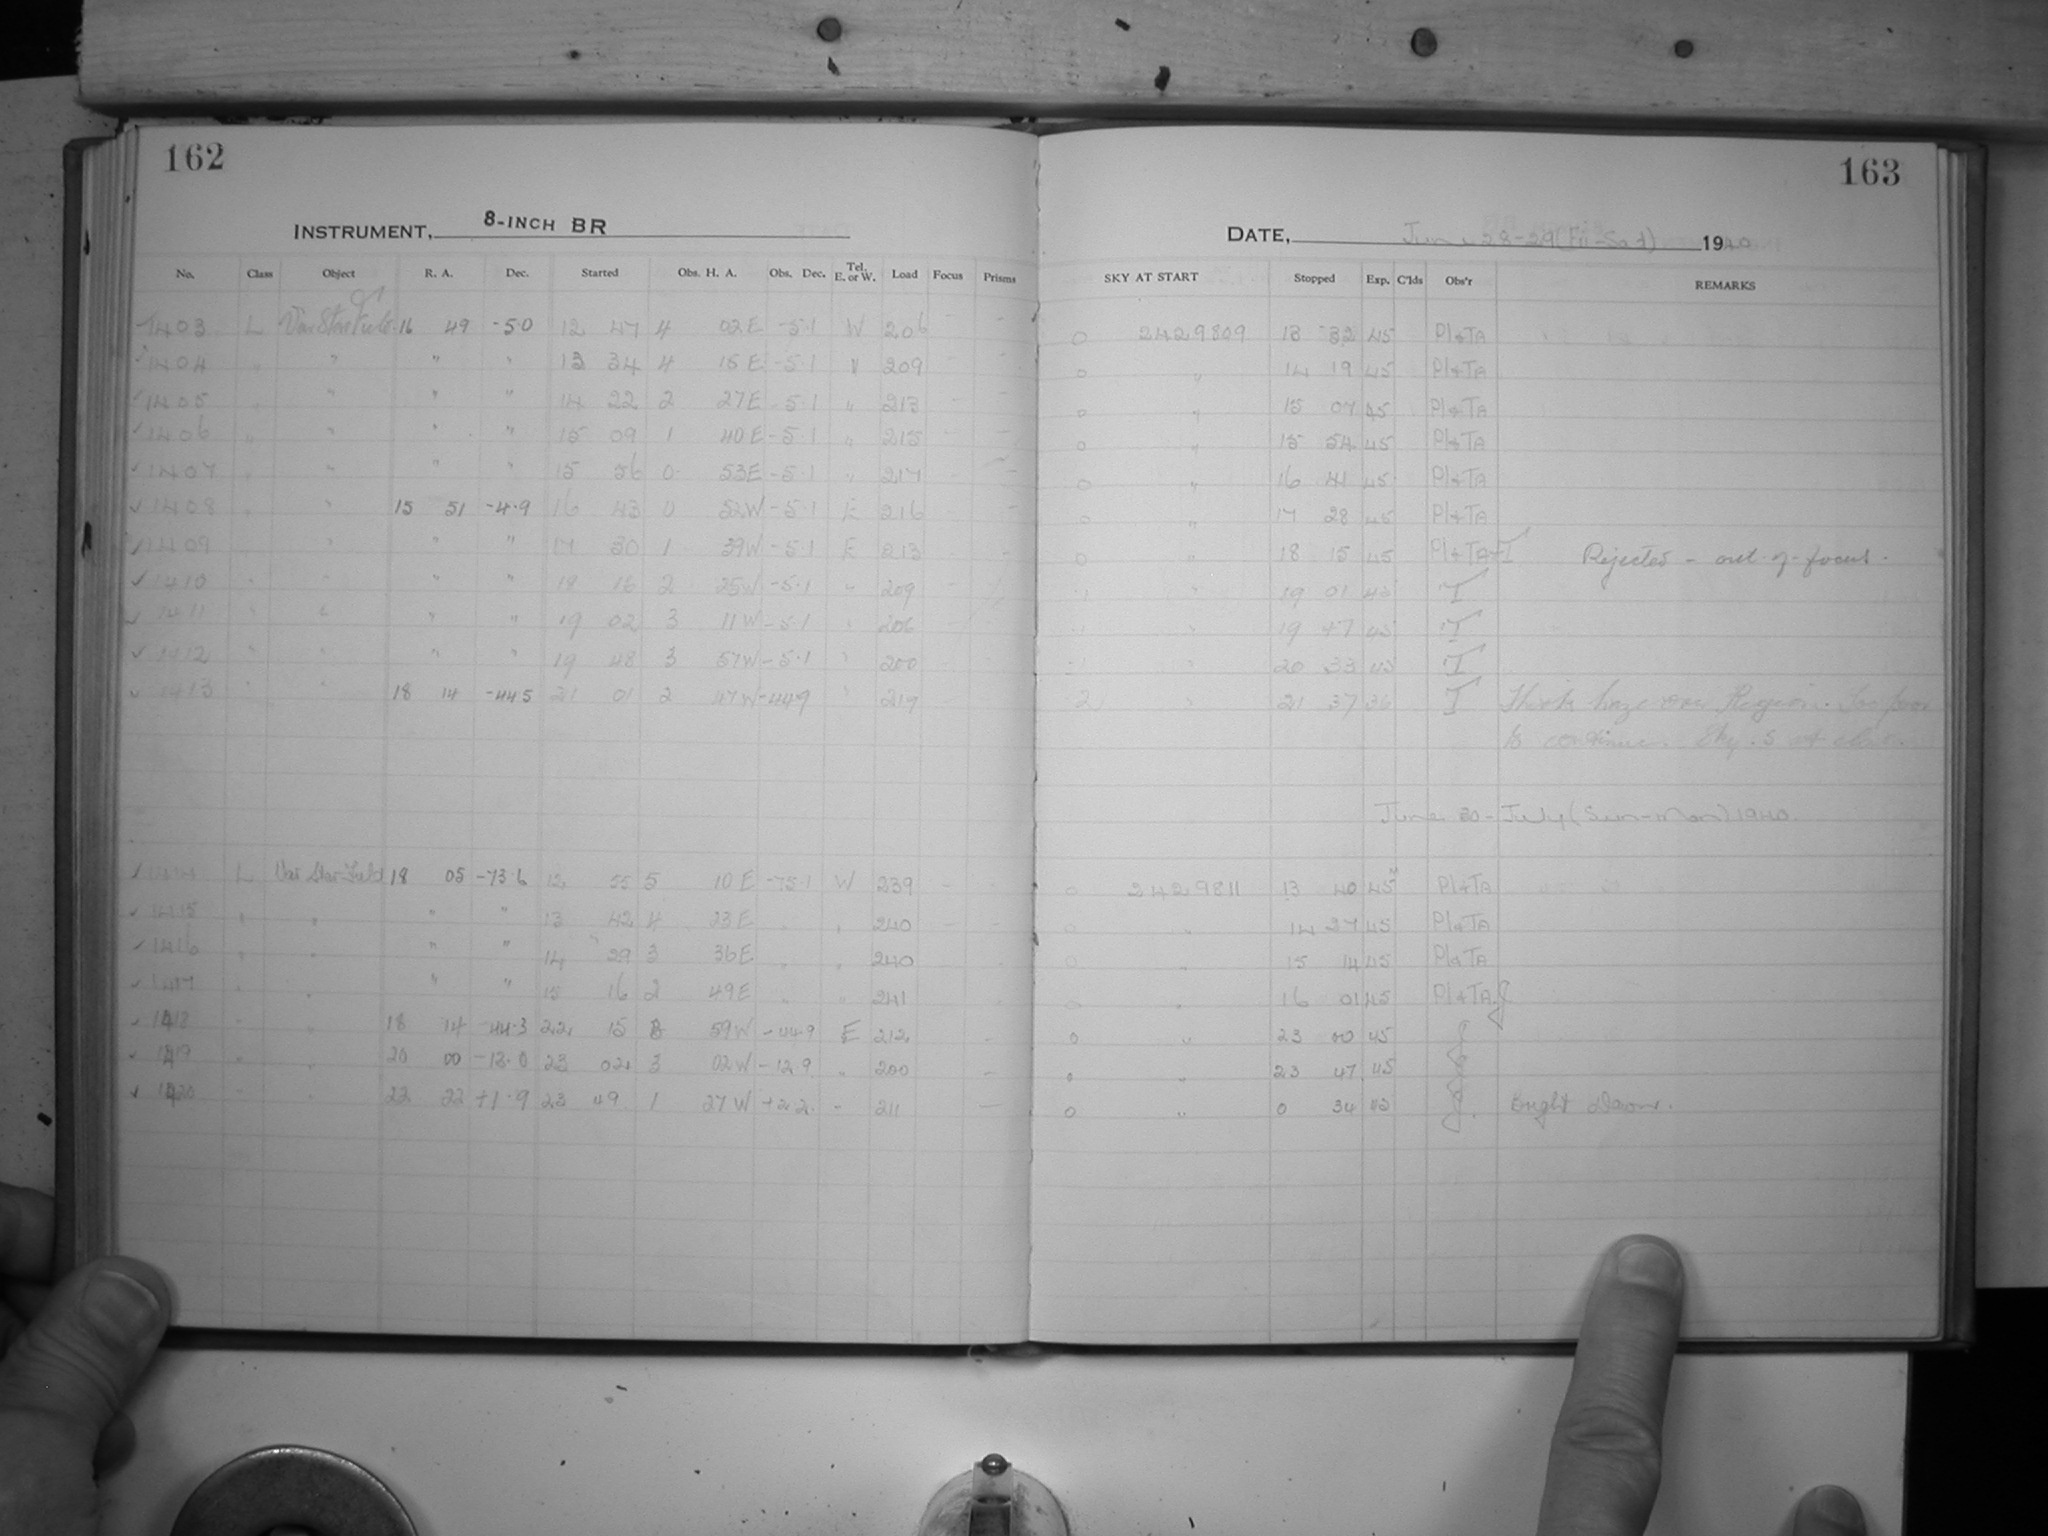 162
INSTRUMENT, 8-INCH BR
No. Class Object R. A. Dec. Started Obs. H. A. Obs. Dec. Tel. E. or W. Load Focus Prisms
1403 L Var Star Field 16 49 -5.0 12 47 4 02E -5.1 W 206
1404 " " " " 13 34 4 15E -5.1 " 209
1405 " " " " 14 22 2 27E -5.1 " 213
1406 " " " " 15 09 1 40E -5.1 " 215
1407 " " " " 15 56 0 53E -5.1 " 217
1408 " 15 51 -4.9 16 43 0 52W -5.1 E 216
1409 " " " 17 30 1 39W -5.1 E 213
1410 " " " " 18 16 2 25W -5.1 " 209
1411 " " " " 19 02 3 11W -5.1 " 206
1412 " " " " 19 48 3 57W -5.1 " 200
1413 " " 18 14 -44.5 21 01 2 47W -44.9 " 219
1414 L Var Star Field 18 05 -73.6 12 55 5 10E -75.1 W 239
1415 " " " " 13 42 4 23E " " 240
1416 " " " " 14 29 3 36E " " 240
1417 " " " " 15 16 2 49E " " 241
1418 " " 18 14 -44.3 22 15 3 59W -44.9 E 212
1419 " " 20 00 -13.0 23 02 3 02W -12.9 " 200
1420 " " 22 22 +1.9 23 49 1 27W +2.2 " 211
163
DATE, June 28-29 (Fri-Sat) 1940
SKY AT START Stopped Exp. C'lds Obs'r REMARKS
0 2429809 13 32 45 Pl&TA
0 " 14 19 45 Pl&TA
0 " 15 07 45 Pl&TA
0 " 15 54 45 Pl&TA
0 " 16 41 45 Pl&TA
0 " 17 28 45 Pl&TA
0 " 18 15 45 Pl&TA-T Rejected - out of focus.
1 " 19 01 45 T
1 " 19 47 45 T
1 " 20 33 45 T
2 " 21 37 36 T Thick haze over Region. Too poor
to continue. Sky .5 at close.
June 30 - July (Sun-Mon) 1940.
0 2429811 13 40 45 Pl&TA
0 " 14 27 45 Pl&TA
0 " 15 14 45 Pl&TA
0 " 16 01 45 Pl&TA
0 " 23 00 45
0 " 23 47 45
0 " 0 34 45 Bright Dawn.